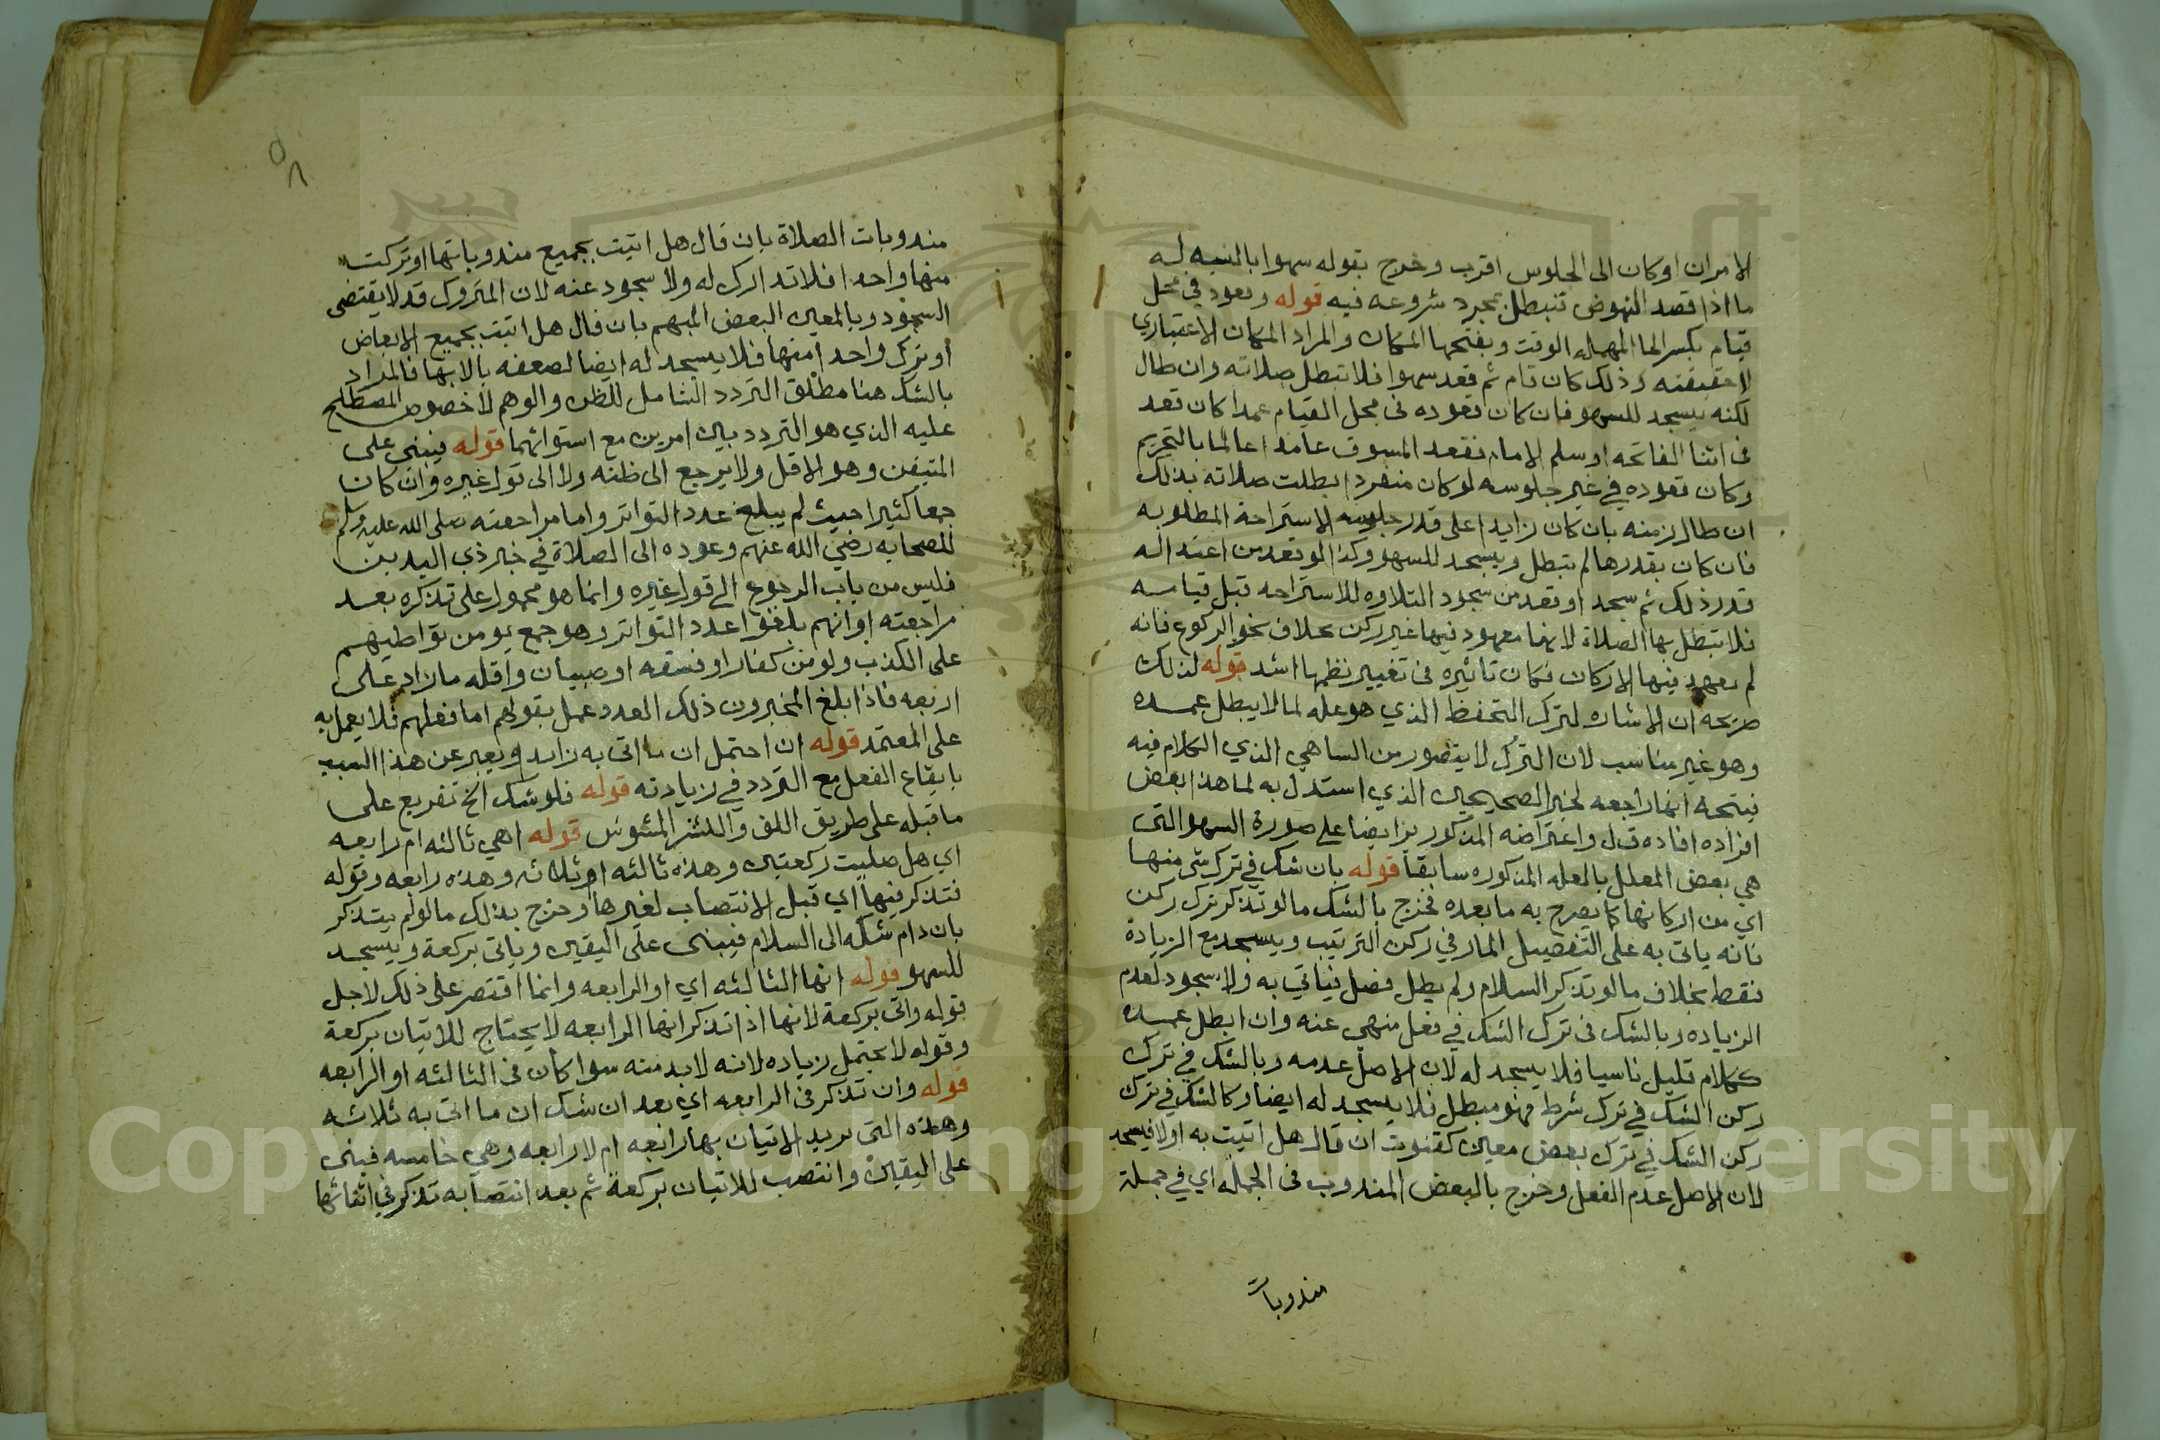 الامران اوكان الى الجلوس اقرب وخرج بقوله سهوا بالنسبه له
ما اذا قصد النهوض تنبطل بمجرد شروعه فيه قوله وقعود في محل
قيام بكسر الحا المهمله الوقت وبفتحها المكان والمراد المكان الاعتباري
لا حقيقته وذلك كان قام ثم قعد سهوا فلا تبطل صلاته وان طال
لكنه يسجد للسهو فان كان قعوده فى محل القيام عمدا كان قعد
فى اثنا الفاتحه او سلم الامام فقعد المسبوق عامدا عالما بالتحريم
وكان قعوده في غير جلوسه لو كان منفردا بطلت صلاته بذلك
ان طال زمنه بان كان زايدا على قدر جلوسه الاستراحة المطلوبه
فان كان بقدرها لم تبطل ويسجد للسهو وكذا لو قعد من اعتداله
قدر ذلك ثم سجد او قعد من سجود التلاوه للاستراحه قبل قيامه
فلا تبطل بها الصلاة لانها معهود فيها غير ركن بخلاف نحو الركوع فانه
لم يعهد فيها الاركان فكان تاثيره فى تغيير نظمها اشد قوله لذلك
صريحه ان الاشاره لترك التحفظ الذي هو عله لما لا يبطل عمده
وهو غير مناسب لان الترك لا يتصور من الساهي الذي الكلام فيه
فيتجه انها راجعه لخبر الصحيحين الذي استدل به لما هذا بعض
افراده افاده ق ل واعتراضه المذكور يرد ايضا على صورة السهو التى
هي بعض المعلل بالعله المذكوره سابقا قوله بان شك في ترك شى منها
اي من اركانها كما يصرح به ما بعده فخرج بالشك ما لو تذكر ترك ركن
فانه ياتى به على التفصيل المار في ركن الترتيب ويسجد مع الزيادة
فقط بخلاف ما لو تذكر السلام ولم يطل فصل فياتي به ولا سجود لعدم
الزياده وبالشك فى ترك الشك في فعل منهي عنه وان ابطل عمده
ككلام قليل ناسيا فلا يسجد له لان الاصل عدمه وبالشك في ترك
ركن الشك في ترك شرط فهو مبطل فلا يسجد له ايضا وكالشك في ترك
ركن الشك في ترك بعض معين كقنوت ان قال هل اتيت به اولا فيسجد
لان الاصل عدم الفعل وخرج بالبعض المندوب فى الجمله اي في جملة
مندوبات
مندوبات الصلاة بان قال هل اتيت بجميع مندوباتها او تركت
منها واحدا فلا تدارك له ولا سجود عنه لان المتروك قد لا يقتضى
السجود وبالمعين البعض المبهم بان قال هل اتيت بجميع الابعاض
او ترك واحدا منها فلا يسجد له ايضا لضعفه بالابهام فالمراد
بالشك هنا مطلق التردد الشامل للظن والوهم لا خصوص المصطلح
عليه الذي هو التردد بين امرين مع استوائهما قوله فيبنى على
المتيقن وهو الاقل ولا يرجع الى ظنه ولا الى قول غيره وان كان
جمعا كثيرا حيث لم يبلغ عدد التواتر واما مراجعته صلى الله عليه وسلم
للصحابه رضي الله عنهم وعوده الى الصلاة في خبر ذي اليدين
فليس من باب الرجوع الى قول غيره وانما هو محمول على تذكره بعد
مراجعته او انهم بلغوا عدد التواتر وهو جمع يومن تواطيهم
على الكذب ولو من كفار او فسقه او صبيان واقله ما زاد على
اربعه فاذا بلغ المخبرون ذلك العدد عمل بقولهم اما فعلهم فلا يعمل به
على المعتمد قوله ان احتمل ان ما اتى به زايد ويعبر عن هذا السبب
بايقاع الفعل مع التردد في زيادته قوله فلو شك الخ تفريع على
ما قبله على طريق اللف والنشر المشوش قوله اهي ثالثه ام رابعه
اي هل صليت ركعتين وهذه ثالثه او ثلاثه وهذه رابعه وقوله
فتذكر فيها اي قبل الانتصاب لغيرها وخرج بذلك ما لو لم يتذكر
بان دام شكه الى السلام فيبنى على اليقين وياتى بركعة ويسجد
للسهو قوله انها الثالثه اي او الرابعه وانما اقتصر على ذلك لاجل
قوله واتى بركعة لانها اذا تذكر انها الرابعه لا يحتاج للاتيان بركعة
وقوله لا يحتمل زياده لانه لا بد منه سوا كان فى الثالثه او الرابعه
قوله وان تذكر فى الرابعه اي بعد ان شك ان ما اتى به ثلاثه
وهذه التى يريد الاتيان بها رابعه ام لا رابعه وهي خامسه فبنى
على اليقين وانتصب للاتيان بركعة ثم بعد انتصابه تذكر في اثنائها